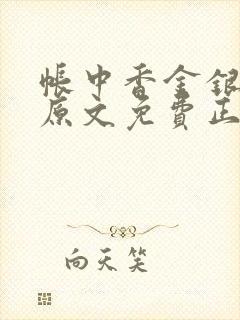 帳中香金銀
原文免費正
向天笑